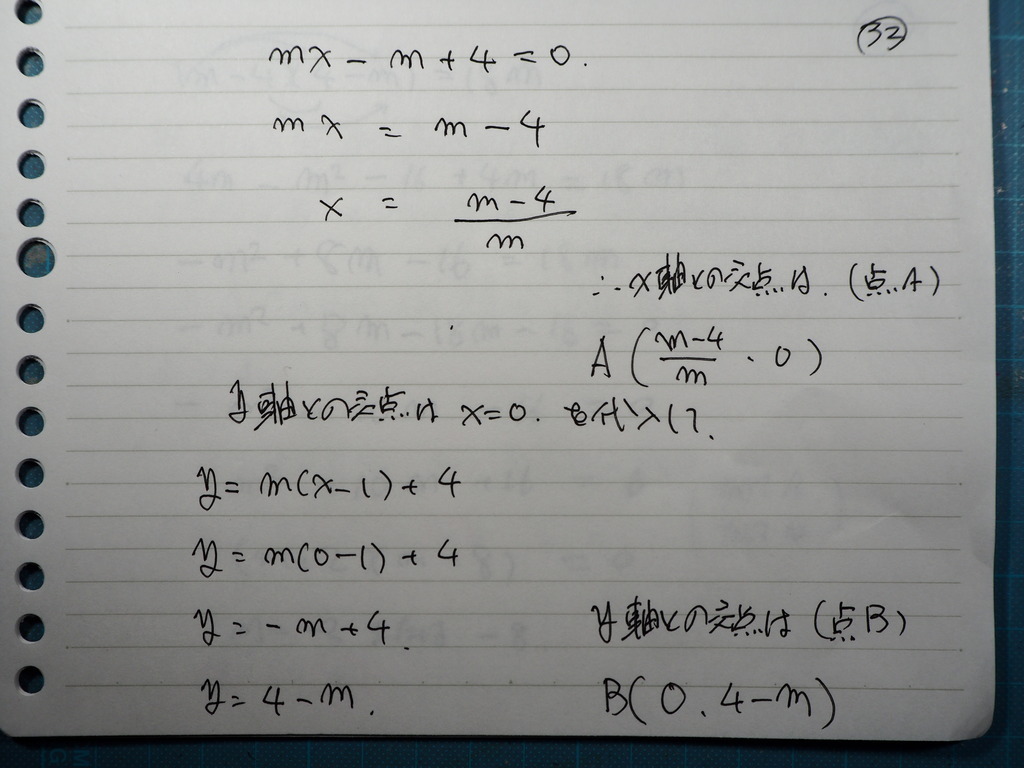 (33)
mx - m + 4 = 0.
mx = m - 4
x = \frac{m-4}{m}
∴x軸との交点は. (点A)
A(\frac{m-4}{m}. 0)
y軸との交点は x=0. を代入して.
y = m(x-1) + 4
y = m(0-1) + 4
y = -m + 4.
y軸との交点は (点B)
y = 4 - m.
B(0. 4-m)